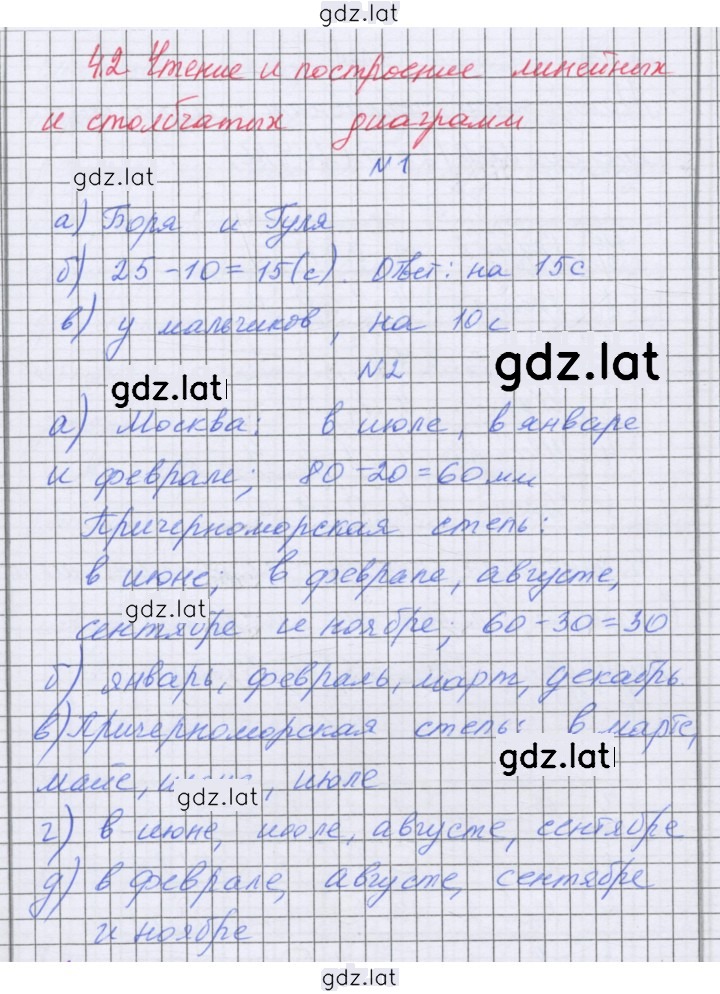 gdz.lat
4.2 Чтение и построение линейных
и столбчатых диаграмм
N1
gdz.lat
а) Боря и Гуля
б) 25-10=15(с). Ответ: на 15с
в) у мальчиков, на 10с
gdz.lat
N2
gdz.lat
а) Москва: в июле, в январе
и феврале; 80-20=60мм
Причерноморская степь:
в июне; в феврале, августе,
gdz.lat
сентябре и ноябре; 60-30=30
б) январь, февраль, март, декабрь
в) Причерноморская степь: в марте,
gdz.lat
мае, июле
gdz.lat
г) в июне, июле, августе, сентябре
д) в феврале, августе, сентябре
и ноябре
gdz.lat